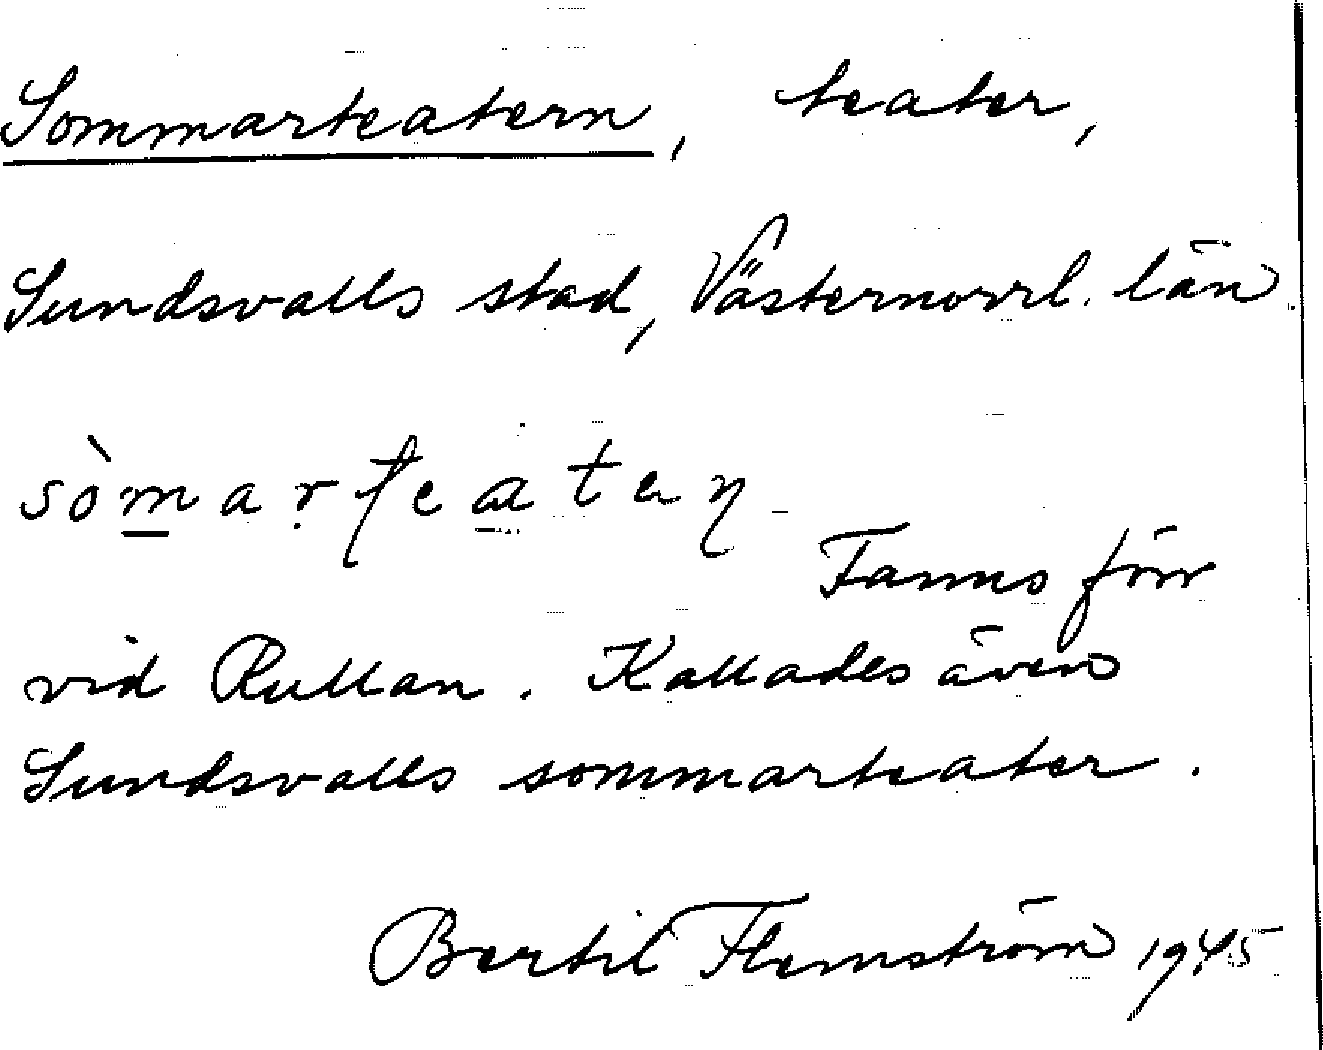 Sommarteatern, teater,
Sundsvalls stad, Västernorrl. län
sòmarteaten
Fanns förr
vid Rullan. Kallades även
Sundsvalls sommarteater.
Bertil Flemström 1945